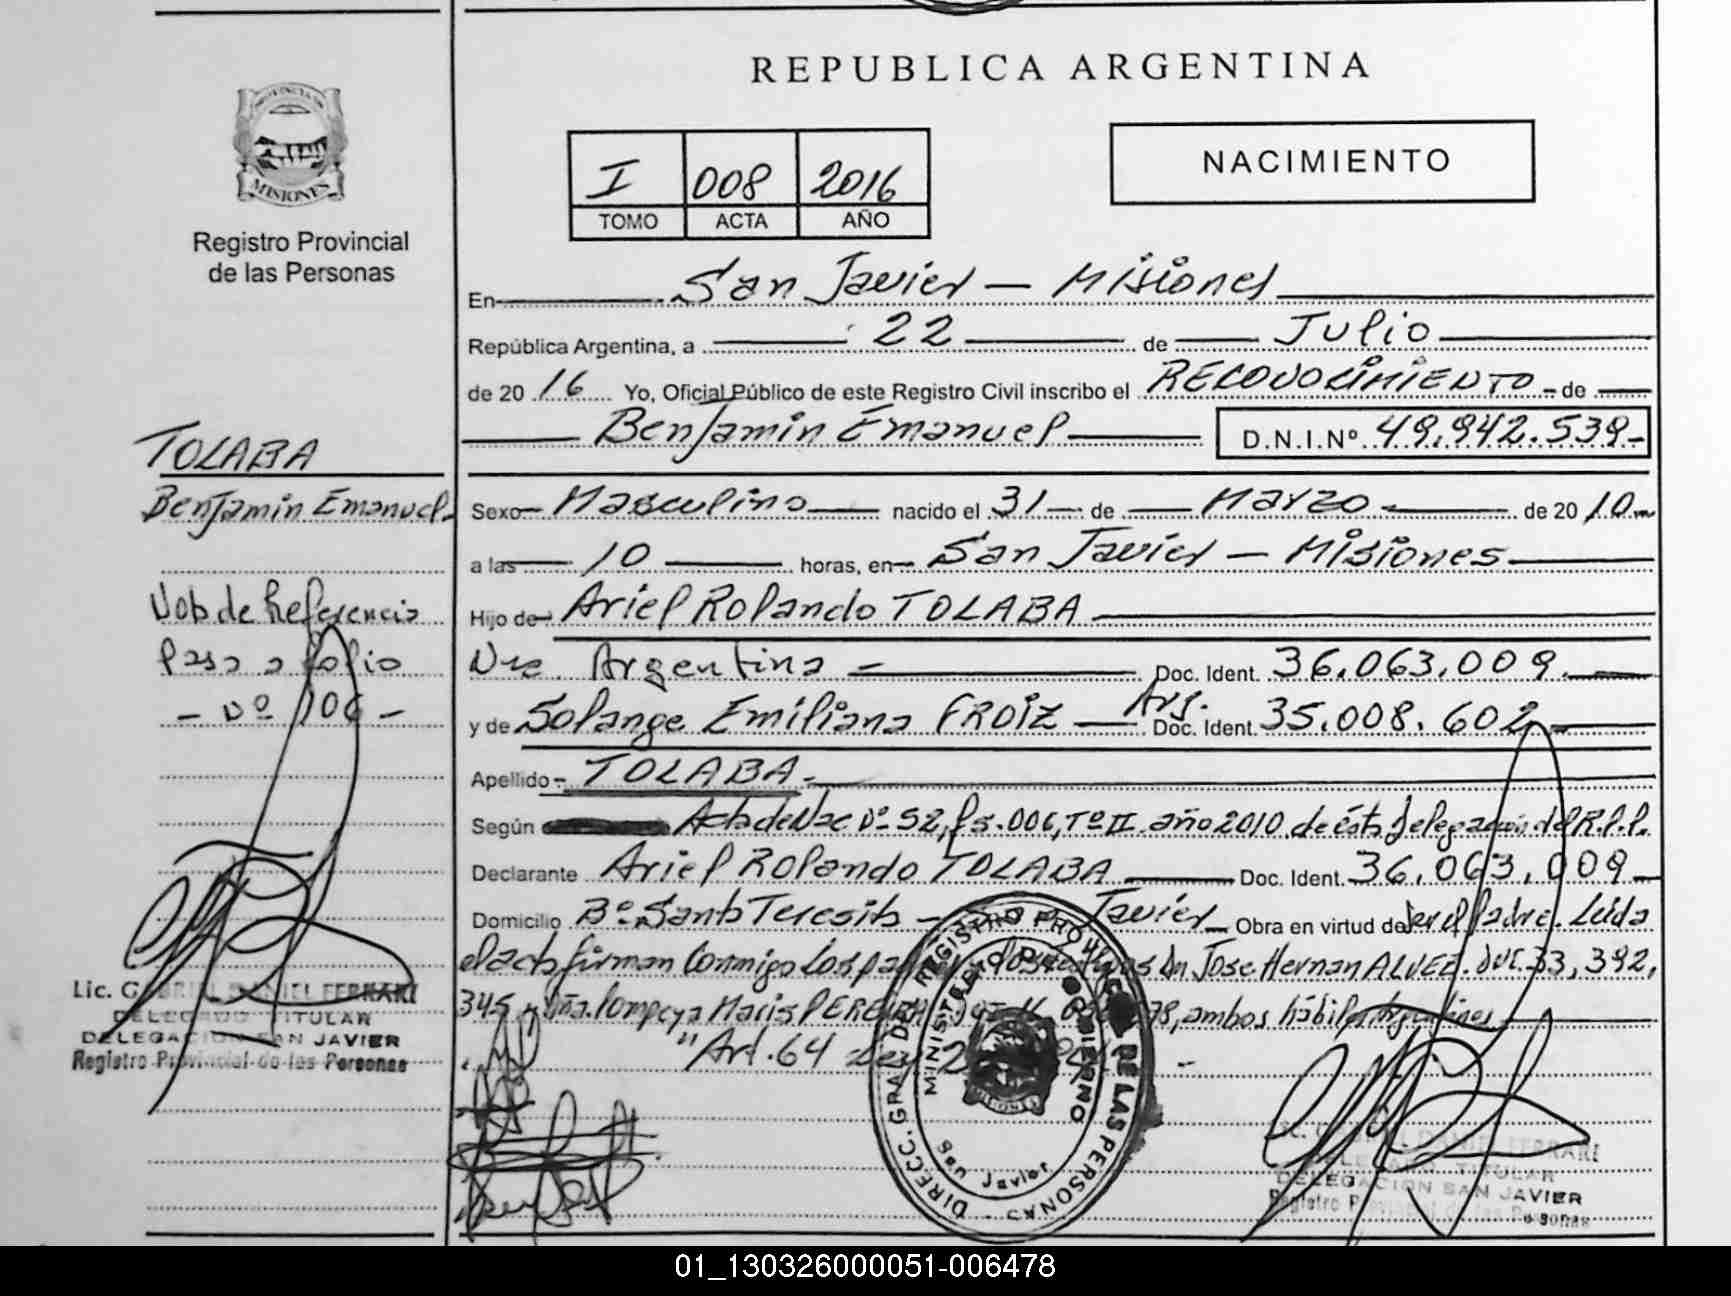 REPUBLICA ARGENTINA
PROVINCIA DE
MISIONES
Registro Provincial
de las Personas
I 008 2016
TOMO ACTA AÑO
NACIMIENTO
En San Javier - Misiones
República Argentina, a 22 de Julio
de 2016 Yo, Oficial Público de este Registro Civil inscribo el RECONOCIMIENTO de
Benjamin Emanuel D.N.I.Nº 49.942.539-
TOLABA
Benjamin Emanuel
Sexo Masculino nacido el 31 de Marzo de 2010
a las 10 horas, en San Javier - Misiones
Nota de Referencia
Pasa a folio
- Nº 106 -
Hijo de Ariel Rolando TOLABA
Nac. Argentina Doc. Ident. 36.063.009
y de Solange Emiliana FROIZ Arg. Doc. Ident. 35.008.602
Apellido TOLABA
Según Acta de Nac Nº 52, Fs. 006, Tº II año 2010 de ésta Delegación del R.P.P.
Declarante Ariel Rolando TOLABA Doc. Ident. 36.063.009
Domicilio Bº Santa Teresita - Javier Obra en virtud de Ser el Padre. Leida
el acta firman Conmigo Los Dn Jose Hernan ALVEZ. DNI 33,392,
345 y Ambos hábiles Argentinos
"Art. 64 Ley
Lic. GABRIEL DANIEL FERRARI
DELEGADO TITULAR
DELEGACION SAN JAVIER
Registro Provincial de las Personas
DIRECC. GRAL DEL REGISTRO PROVINCIAL DE LAS PERSONAS
MINISTERIO DE GOBIERNO
San Javier
Lic. GABRIEL DANIEL FERRARI
DELEGADO TITULAR
DELEGACION SAN JAVIER
Registro Provincial de las Personas
01_130326000051-006478